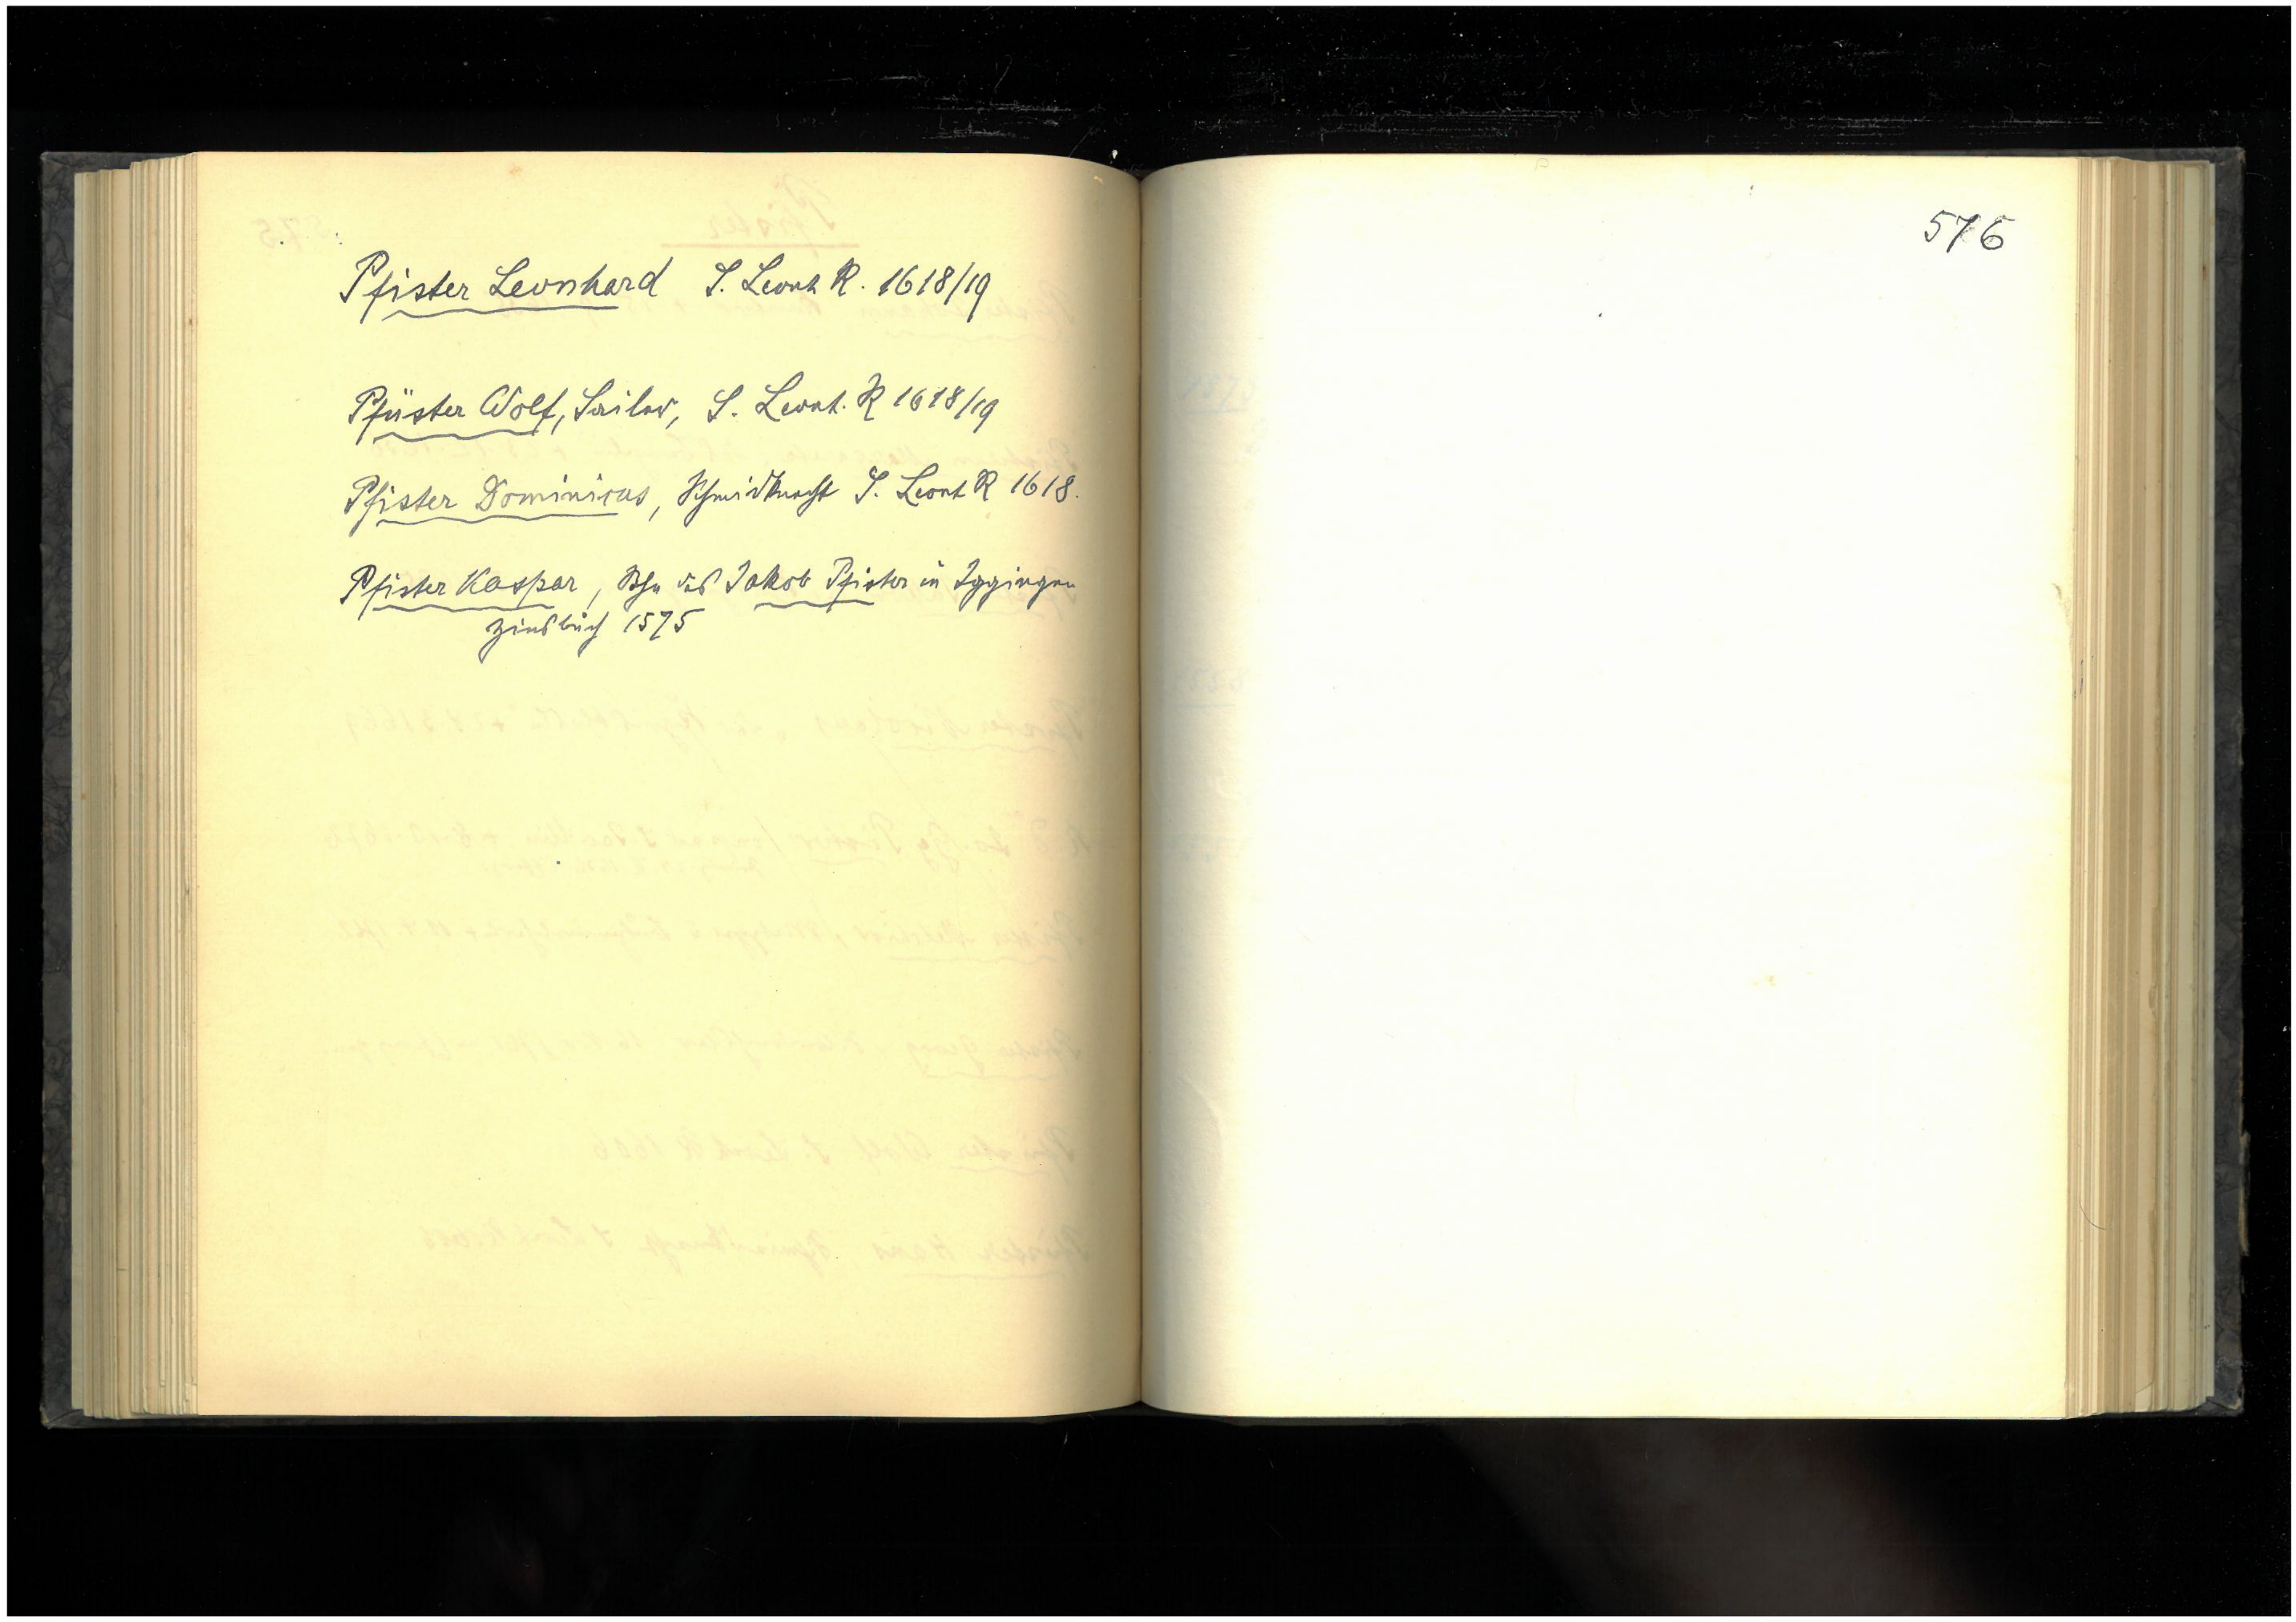 Pfister Leonhard S. Leonh R. 1618/19
Pfüster Wolf, Sailer, S. Leonh. R 1618/19
Pfister Dominicus, Schmidknecht S. Leonh R 1618.
Pfister Kaspar, Sohn des Jakob Pfister in Iggingen
Zinsbuch 1575
576